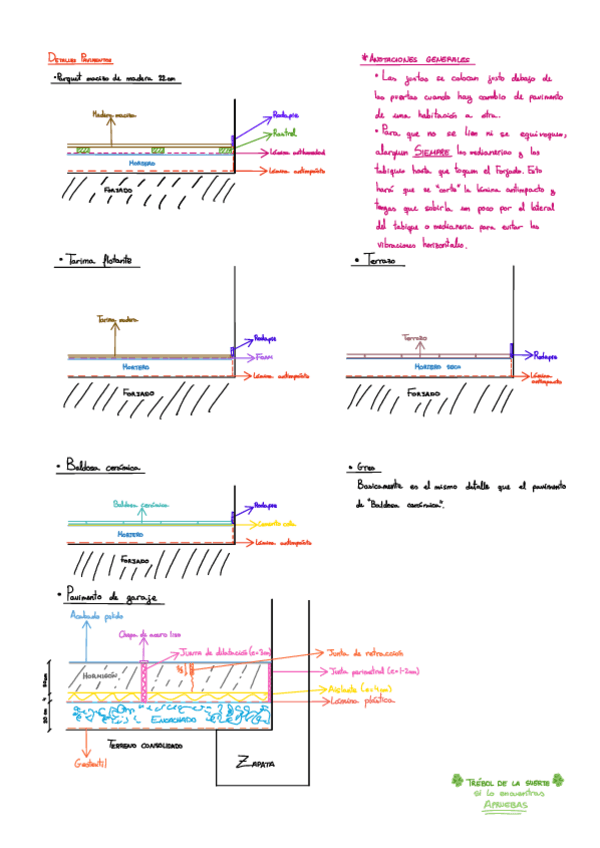 DETALLES PAVIMENTOS
• Parquet macizo de madera 22cm
Madera maciza
Rodapie
Rastrel
Lámina antihumedad
MORTERO
Lámina antiimpacto
FORJADO
* ANOTACIONES GENERALES
• Las juntas se colocan justo debajo de
las puertas cuando hay cambio de pavimento
de una habitación a otra.
• Para que no se líen ni se equivoquen,
alarguen SIEMPRE las medianerias y los
tabiques hasta que toquen el Forjado. Esto
hará que se "corte" la lámina antimpacto y
tengas que subirla un poco por el lateral
del tabique o medianeria para evitar las
vibraciones horizontales.
• Tarima flotante
Tarima madera
Rodapie
FOAM
MORTERO
Lámina antiimpacto
FORJADO
• Terrazo
Terrazo
Rodapie
MORTERO SECO
Lámina
antiimpacto
FORJADO
• Baldosa cerámica
Baldosa cerámica
Rodapie
Cemento cola
MORTERO
Lámina antiimpacto
FORJADO
• Gres
Basicamente es el mismo detalle que el pavimento
de "Baldosa cerámica".
• Pavimento de garaje
Acabado pulido
Chapa de acero liso
Junta de dilatación (e=3cm)
Junta de retracción
HORMIGÓN
Junta perimetral (e=1-2cm)
Aislante (e=4cm)
Lámina plástica
20 cm
ENCACHADO
TERRENO CONSOLIDADO
Geotextil
ZAPATA
TRÉBOL DE LA SUERTE
si lo encuentras
APRUEBAS